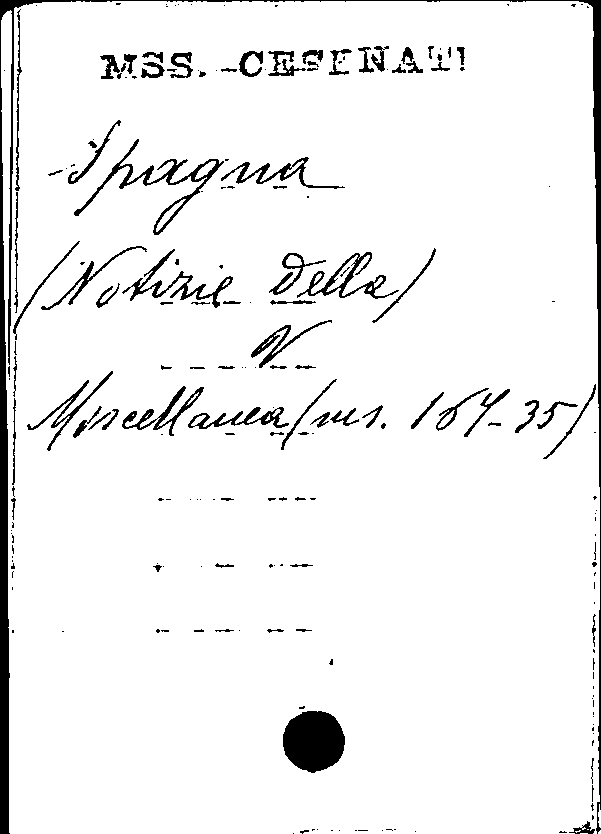 MSS. CESENATI
Spagna
(Notizie della)
V
Miscellanea (ms. 164-35)